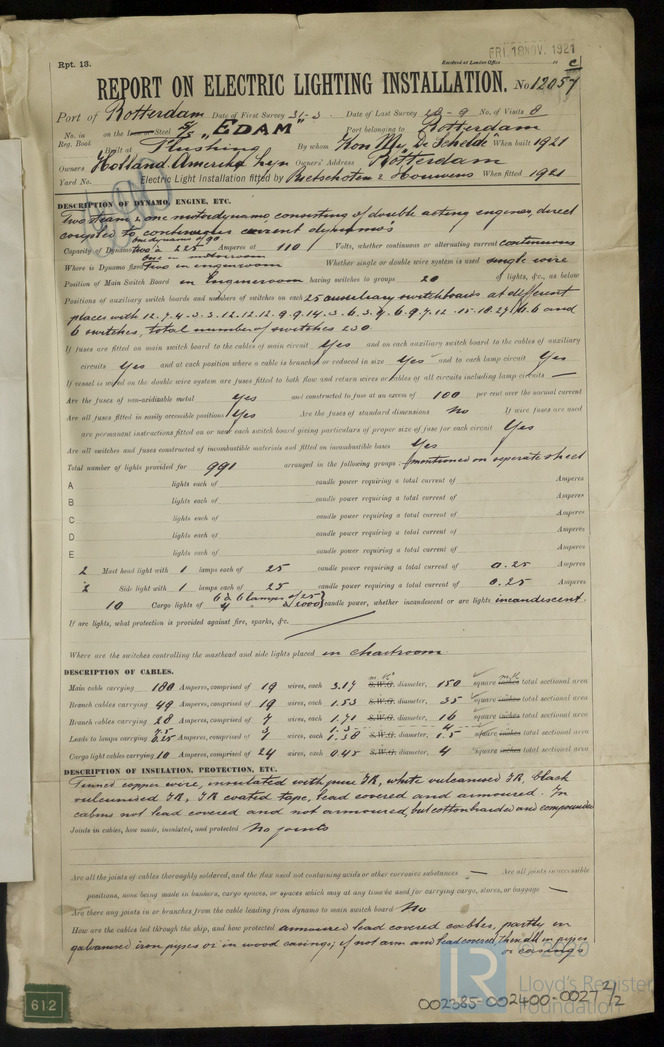 FRI. 18 NOV. 1921
Rpt. 13. Received at London Office
REPORT ON ELECTRIC LIGHTING INSTALLATION. No 12057
Port of Rotterdam Date of First Survey 31-3 Date of Last Survey No. of Visits 8
No. in Reg. Book on the Iron or Steel S/S "EDAM" Port belonging to Rotterdam
Built at Flushing By whom Kon Mij "De Schelde" When built 1921
Owners Holland Amerika Lijn Owners' Address Rotterdam
Yard No. Electric Light Installation fitted by Rietschoten & Houwens When fitted 1921
DESCRIPTION OF DYNAMO, ENGINE, ETC.
Two steam & one motordynamo consisting of double acting engines, direct
coupled to continuous current dynamos
one dynamo of 90
Capacity of Dynamo two à 225 Amperes at 110 Volts, whether continuous or alternating current continuous
one in motorroom
Where is Dynamo fixed two in engineroom Whether single or double wire system is used single wire
Position of Main Switch Board in Engineroom having switches to groups 20 of lights, &c., as below
Positions of auxiliary switch boards and numbers of switches on each 25 auxiliary switchboards at different
places with 12. 7. 4. 3. 3. 12. 12. 12. 9. 9. 14. 3. 6. 3. 7. 6. 9. 7. 12. 15. 18. 27. 4. 6 and
6 switches, total number of switches 230
If fuses are fitted on main switch board to the cables of main circuit Yes and on each auxiliary switch board to the cables of auxiliary
circuits Yes and at each position where a cable is branched or reduced in size Yes and to each lamp circuit Yes
If vessel is wired on the double wire system are fuses fitted to both flow and return wires or cables of all circuits including lamp circuits —
Are the fuses of non-oxidizable metal Yes and constructed to fuse at an excess of 100 per cent over the normal current
Are all fuses fitted in easily accessible positions Yes Are the fuses of standard dimensions No If wire fuses are used
are permanent instructions fitted on or near each switch board giving particulars of proper size of fuse for each circuit Yes
Are all switches and fuses constructed of incombustible materials and fitted on incombustible bases Yes
Total number of lights provided for 991 arranged in the following groups :— mentioned on seperate sheet
A lights each of candle power requiring a total current of Amperes
B lights each of candle power requiring a total current of Amperes
C lights each of candle power requiring a total current of Amperes
D lights each of candle power requiring a total current of Amperes
E lights each of candle power requiring a total current of Amperes
2 Mast head light with 1 lamps each of 25 candle power requiring a total current of 0.25 Amperes
2 Side light with 1 lamps each of 25 candle power requiring a total current of 0.25 Amperes
10 Cargo lights of 6 à 6 lamps of 25 4 à 2000 candle power, whether incandescent or arc lights incandescent.
If arc lights, what protection is provided against fire, sparks, &c.
Where are the switches controlling the masthead and side lights placed in chartroom
DESCRIPTION OF CABLES.
Main cable carrying 180 Amperes, comprised of 19 wires, each 3.17 S.W.G. diameter, 150 square inches total sectional area
Branch cables carrying 49 Amperes, comprised of 19 wires, each 1.53 S.W.G. diameter, 35 square inches total sectional area
Branch cables carrying 28 Amperes, comprised of 7 wires, each 1.71 S.W.G. diameter, 16 square inches total sectional area
Leads to lamps carrying 0.25 Amperes, comprised of 1 wires, each 1.38 S.W.G. diameter, 1.5 square inches total sectional area
Cargo light cables carrying 10 Amperes, comprised of 24 wires, each 0.45 S.W.G. diameter, 4 square inches total sectional area
DESCRIPTION OF INSULATION, PROTECTION, ETC.
Tinned copper wire, insulated with pure I.R, white vulcanised I.R, black
vulcanised I.R, I.R coated tape, lead covered and armoured. In
cabins not lead covered and not armoured, but cotton braided and compounded
Joints in cables, how made, insulated, and protected No joints
Are all the joints of cables thoroughly soldered, and the flux used not containing acids or other corrosive substances — Are all joints in accessible
positions, none being made in bunkers, cargo spaces, or spaces which may at any time be used for carrying cargo, stores, or baggage —
Are there any joints in or branches from the cable leading from dynamo to main switch board No
How are the cables led through the ship, and how protected armoured lead covered cables, partly in
galvanised iron pipes or in wood casings; if not arm and lead covered, then all in pipes
or casings
612
LR
© 2020
Lloyd's Register
Foundation
002385-002400-0027 2/2